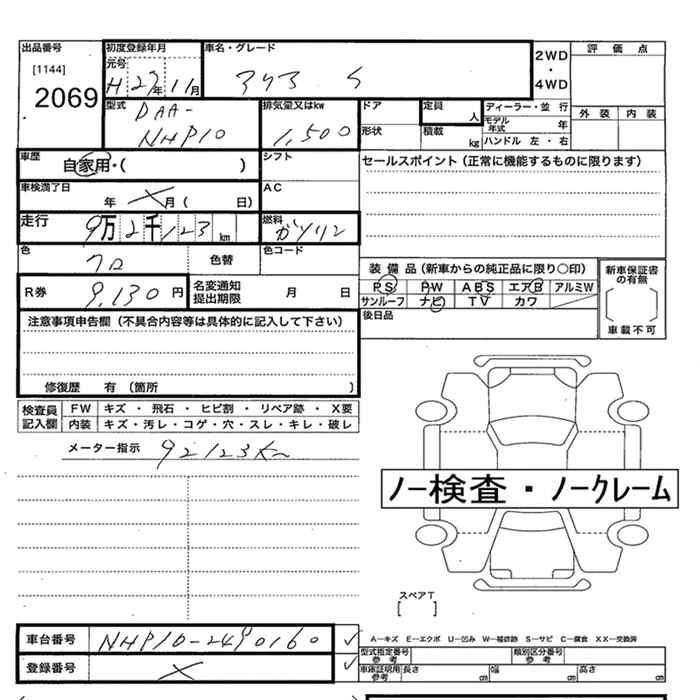 出品番号 初度登録年月 車名・グレード 2WD・4WD 評価点
[1144] 元号 H 27年 11月 アクア S
2069 型式 DAA-NHP10 排気量又はkw 1,500 ドア 定員 人 ディーラー・並行 外装 内装
形状 積載 kg モデル年式 年
ハンドル 左・右
車歴 自家用・( ) シフト セールスポイント (正常に機能するものに限ります)
車検満了日 年 月 ( 日) AC
走行 9万2千123km 燃料 ガソリン
色 クロ 色替 色コード 装備品 (新車からの純正品に限り○印) 新車保証書の有無
R券 9,130円 名変通知提出期限 月 日 PS PW ABS エアB アルミW
サンルーフ ナビ TV カワ 車載不可
注意事項申告欄 (不具合内容等は具体的に記入して下さい) 後日品
修復歴 有 (箇所 )
検査員記入欄 FW キズ・飛石・ヒビ割・リペア跡・X要
内装 キズ・汚レ・コゲ・穴・スレ・キレ・破レ
メーター指示 92123Km
ノー検査・ノークレーム
スペアT
[ ]
車台番号 NHP10-2490160 A―キズ E―エクボ U―凹み W―補修跡 S―サビ C―腐食 XX―交換済
型式指定番号 参考 類別区分番号 参考
登録番号 × 車庫証明用 参考 長さ cm 幅 cm 高さ cm